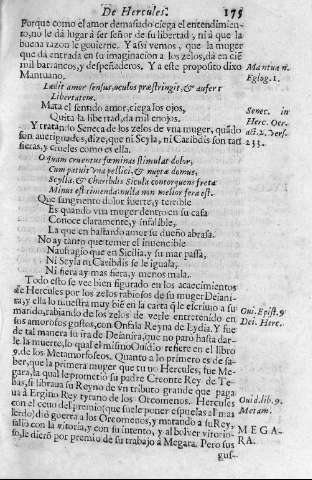 De Hercules. 175
Porque como el amor demasiado ciega el entendimiẽ-
to, no le dà lugar à ser señor de su libertad, ni à que la
buena razon le gouierne. Y assi vemos, que la muger
que dà entrada en su imaginacion a los zelos, dà en ciẽ
mil barrancos, y despeñaderos. Y a este proposito dixo
Mantuano.
Mantua n.
Eglog. 1.
Lædit amor sensus, oculos præstringit, & aufert
Libertatem.
Mata el sentido amor, ciega los ojos,
Quita la libertad, da mil enojos.
Y tratando Seneca de los zelos de vna muger, quãdo
son aueriguados, dize, que ni Scyla, ni Caribdis son tan
fieras, y crueles como es ella.
Senec. in
Herc. Oet.
act. 2. vers.
233.
O quam cruentus fœminas stimulat dolor,
Cum patuit vna pellici, & nuptæ domus,
Scylla, & Charibdis Sicula contorquens freta
Minus est timenda: nulla non melior fera est.
Que sangriento dolor fuerte, y terrible
Es quando vna muger dentro en su casa
Conoce claramente, y infalible,
La que en bastardo amor su dueño abrasa.
No ay tanto que temer el inuencible
Naufragio que en Sicilia, y su mar passa,
Ni Scyla ni Caribdis se le iguala,
Ni fiera ay mas fiera, y menos mala.
Todo esto se vee bien figurado en los acaecimientos
de Hercules por los zelos rabiosos de su muger Deiani-
ra, y ella lo muestra muy biẽ en la carta q̃ le escriuio a su
marido, rabiando de los zelos de verle entretenido en
sus amorosos gustos, con Onfala Reyna de Lydia. Y fue
de tal manera la ira de Deianira, que no parò hasta dar-
le la muerte, lo qual el mismo Ouidio refiere en el libro
9. de los Metamorfoseos. Quanto a lo primero es de sa-
ber, que la primera muger que tuuo Hercules, fue Me-
gara, la qual le prometio su padre Creonte Rey de Te-
bas, si libraua su Reyno de vn tributo grande que paga
ua à Ergino Rey tyrano de los Orcomenos. Hercules
con el ceuo del premio (que suele poner espuelas al mas
lerdo) diò guerra a los Orcomenos, y matando a su Rey,
salio con la vitoria, y con su intento, y al bolver vitorio-
so, le dieron por premio de su trabajo à Megara. Pero sus
Oui. Epist. 9
Dei. Herc.
Ouid. lib. 9.
Metam.
MEGA-
RA.
gus-